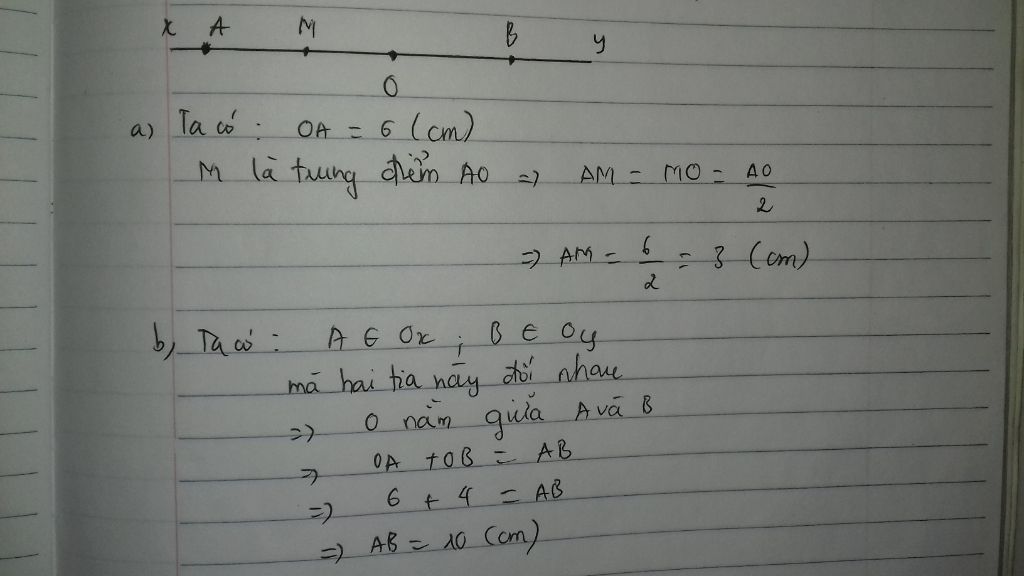 x A M B y
O
a) Ta có: OA = 6 (cm)
M là trung điểm AO => AM = MO = AO/2
=> AM = 6/2 = 3 (cm)
b) Ta có: A ∈ Ox ; B ∈ Oy
mà hai tia này đối nhau
=> O nằm giữa A và B
=> OA + OB = AB
=> 6 + 4 = AB
=> AB = 10 (cm)